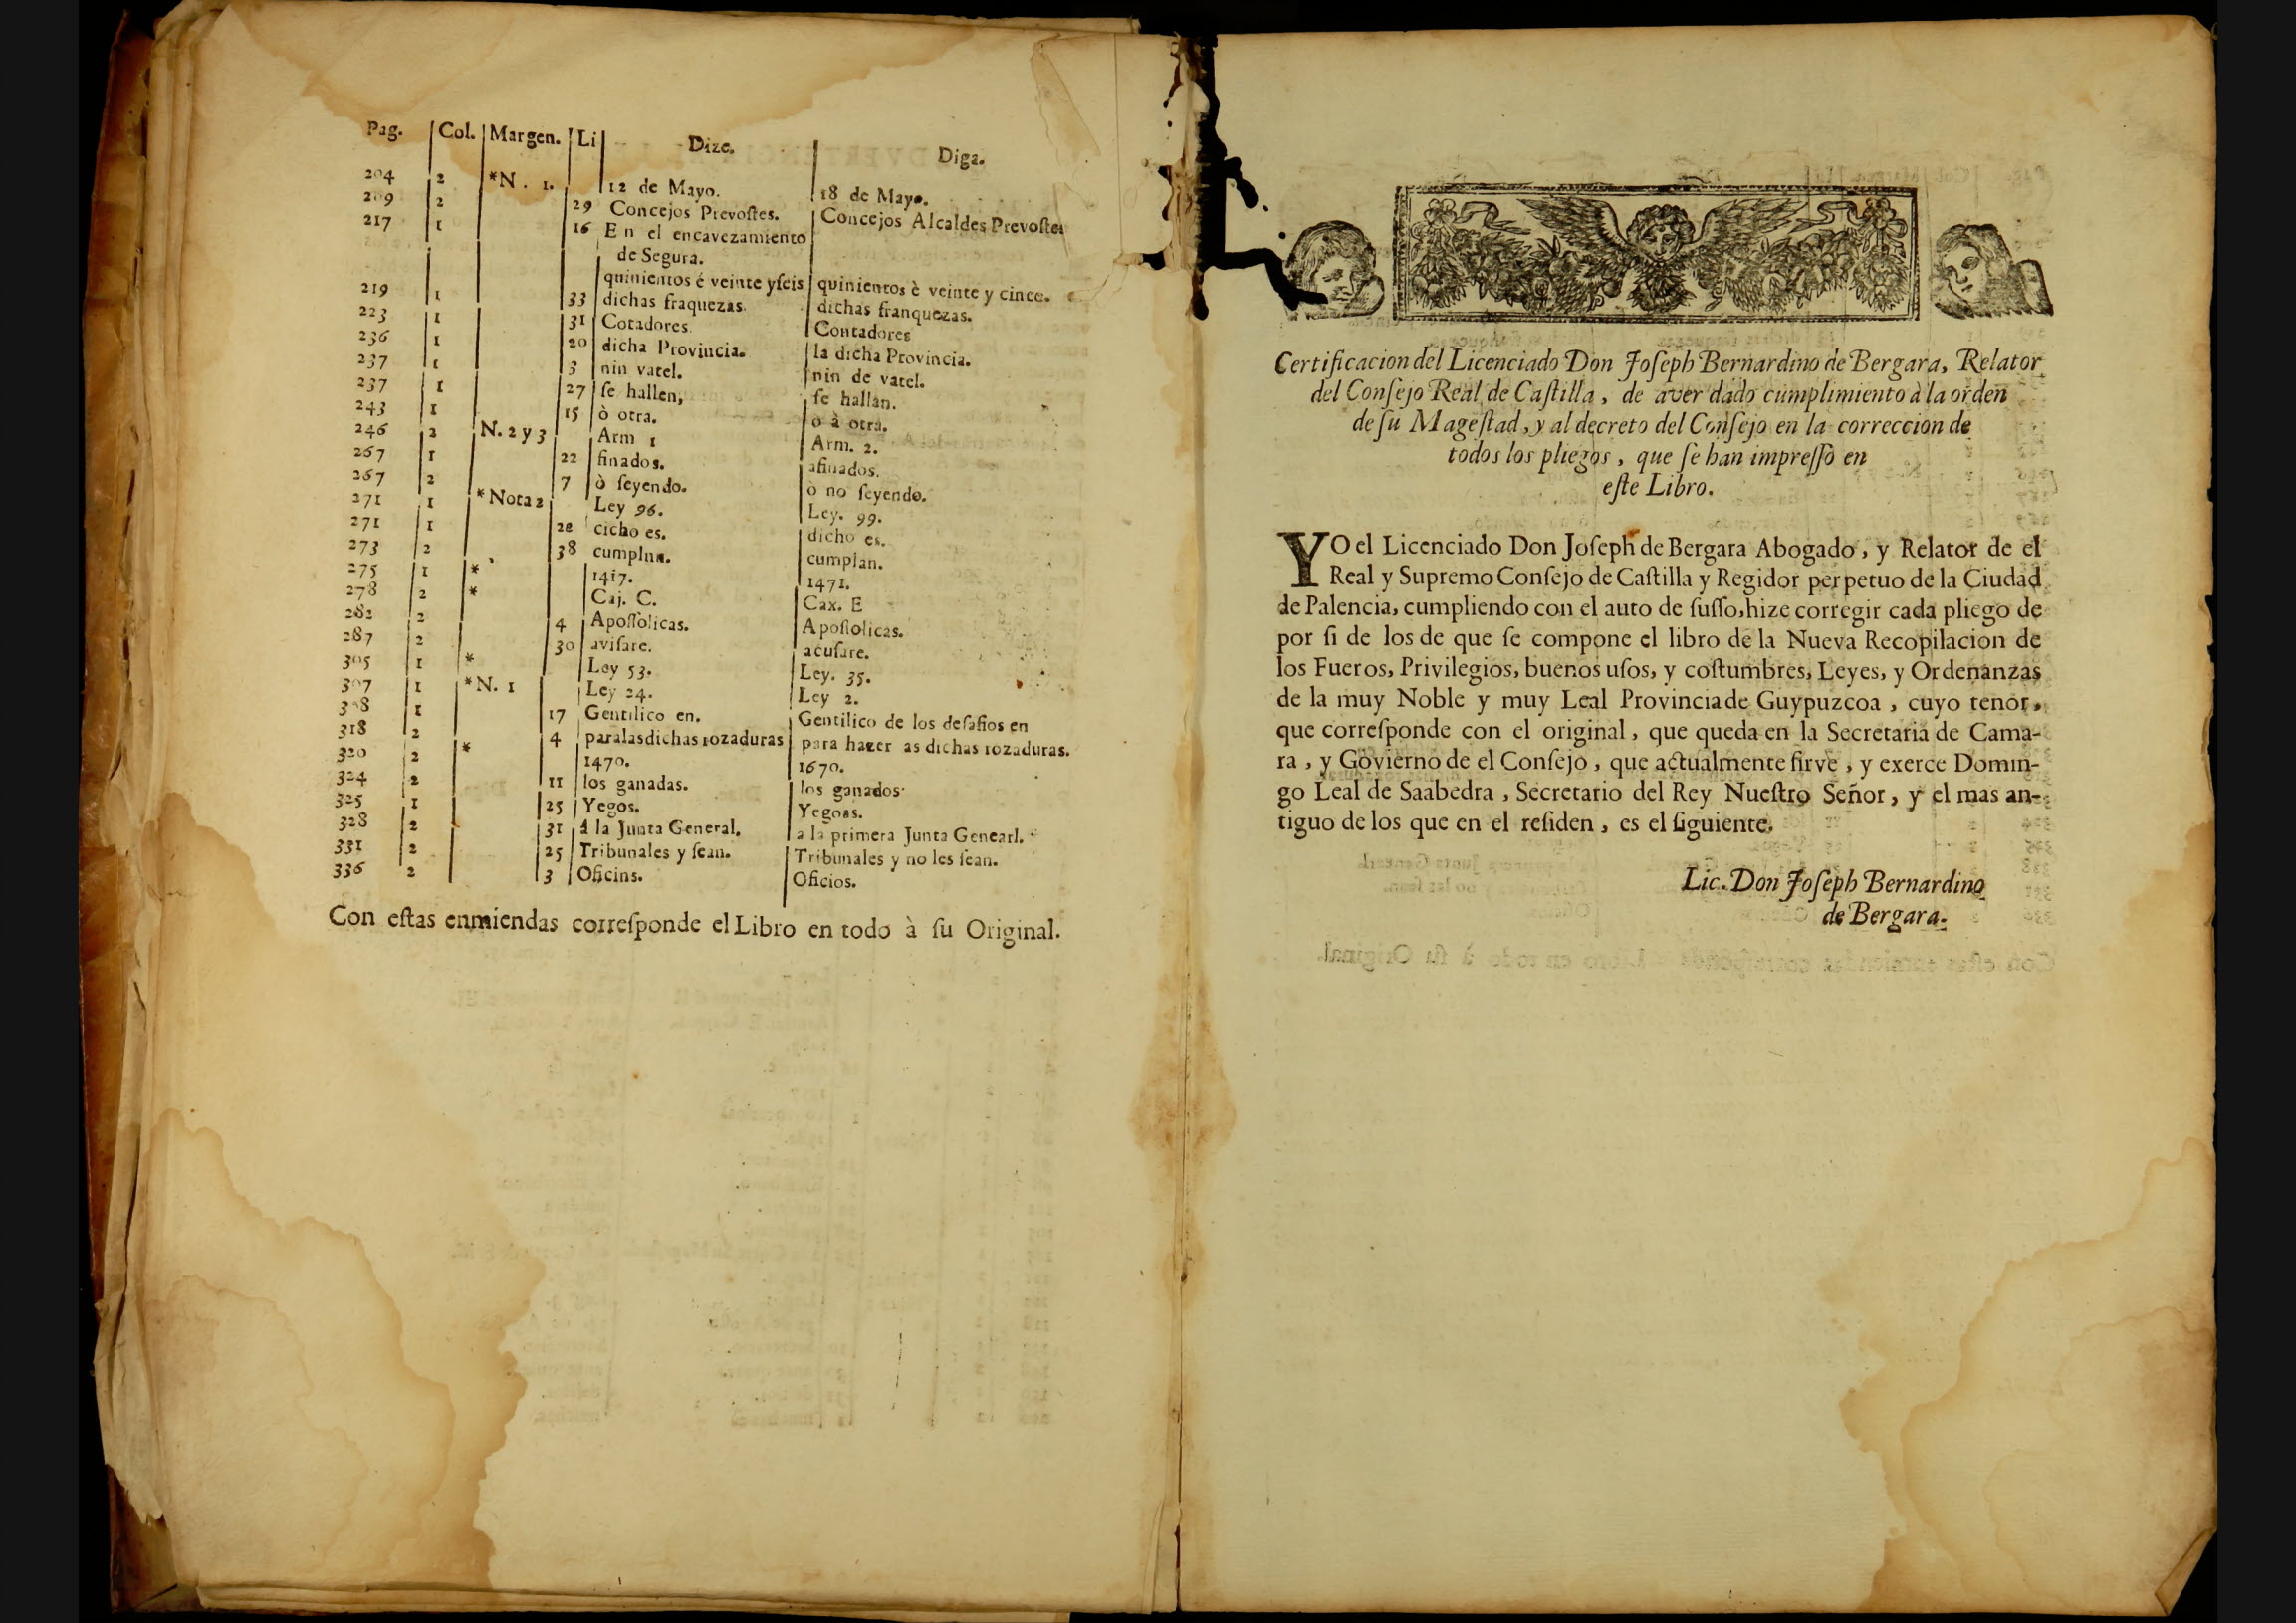 Pag. Col. Margen. Li Dize. Diga.
204 2 *N. 1. 12 de Mayo. 18 de Mayo.
209 2 29 Concejos Prevoſtes. Concejos Alcaldes Prevoſtes
217 1 16 En el encavezamiento
de Segura.
quinientos é veinte y ſeis quinientos è veinte y cinco.
219 1 33 dichas fraquezas. dichas franquezas.
223 1 31 Cotadores. Contadores
236 1 20 dicha Provincia. la dicha Provincia.
237 1 3 nin vatel. nin de vatel.
237 1 27 ſe hallen, ſe hallan.
243 1 15 ò otra. o à otra.
246 2 N. 2 y 3 Arm 1 Arm. 2.
267 1 22 finados. afinados.
267 2 7 ò ſeyendo. ò no ſeyendo.
271 1 *Nota 2 Ley 96. Ley. 99.
271 1 28 cicho es. dicho es.
273 2 38 cumplun. cumplan.
275 1 * 1417. 1471.
278 2 * Caj. C. Cax. E
282 2 4 Apoſſolicas. Apoſtolicas.
287 2 30 aviſare. acuſare.
305 1 * Ley 53. Ley. 35.
307 1 *N. 1 Ley 24. Ley 2.
308 1 17 Gentilico en. Gentilico de los deſafios en
318 2 4 paralasdichas rozaduras para hazer as dichas rozaduras.
320 2 * 1470. 1670.
324 2 11 los ganadas. los ganados.
325 1 25 Yegos. Yegoas.
328 2 31 á la Junta General. a la primera Junta Genearl.
331 2 25 Tribunales y ſean. Tribunales y no les ſean.
336 2 3 Oficins. Oficios.
Con eſtas enmiendas correſponde el Libro en todo à ſu Original.
Certificacion del Licenciado Don Joſeph Bernardino de Bergara, Relator
del Conſejo Real de Caſtilla, de aver dado cumplimiento à la orden
de ſu Mageſtad, y al decreto del Conſejo en la correccion de
todos los pliegos, que ſe han impreſſo en
eſte Libro.
YO el Licenciado Don Joſeph de Bergara Abogado, y Relator de el
Real y Supremo Conſejo de Caſtilla y Regidor perpetuo de la Ciudad
de Palencia, cumpliendo con el auto de ſuſſo, hize corregir cada pliego de
por ſi de los de que ſe compone el libro de la Nueva Recopilacion de
los Fueros, Privilegios, buenos uſos, y coſtumbres, Leyes, y Ordenanzas
de la muy Noble y muy Leal Provincia de Guypuzcoa, cuyo tenor,
que correſponde con el original, que queda en la Secretaria de Cama-
ra, y Govierno de el Conſejo, que actualmente ſirve, y exerce Domin-
go Leal de Saabedra, Secretario del Rey Nueſtro Señor, y el mas an-
tiguo de los que en el reſiden, es el ſiguiente.
Lic. Don Joſeph Bernardino
de Bergara.